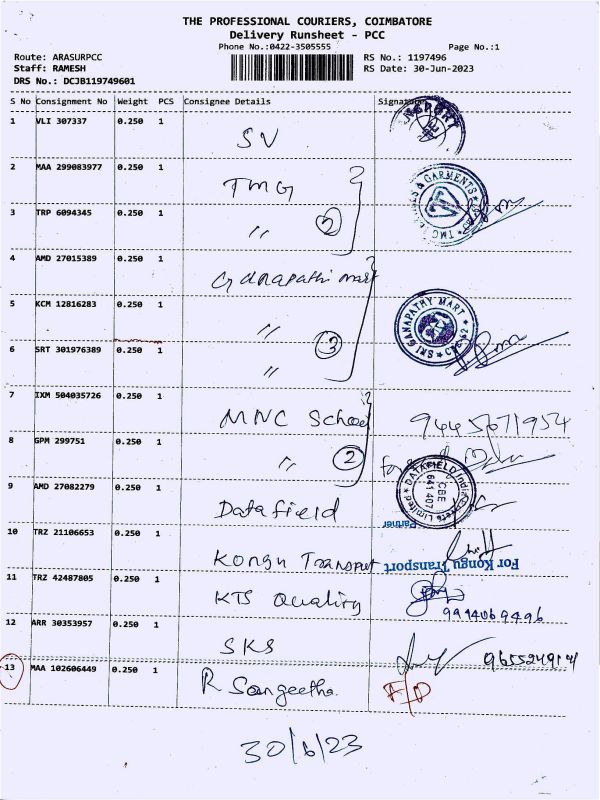 THE PROFESSIONAL COURIERS, COIMBATORE
Delivery Runsheet - PCC
Phone No.:0422-3505555 Page No.:1
Route: ARASURPCC RS No.: 1197496
Staff: RAMESH RS Date: 30-Jun-2023
DRS No.: DCJB119749601
S No Consignment No Weight PCS Consignee Details Signature
1 VLI 307337 0.250 1 SV
2 MAA 299083977 0.250 1 TMG
3 TRP 6094345 0.250 1 〃 2
4 AMD 27015389 0.250 1 Ganapathi mart
5 KCM 12816283 0.250 1 〃 SRI GANAPATHY MART
6 SRT 301976389 0.250 1 〃 3
7 IXM 504035726 0.250 1 MNC School 9445671954
8 GPM 299751 0.250 1 〃 2
9 AMD 27082279 0.250 1 Datafield CBE 641 407
Partner
10 TRZ 21106653 0.250 1 Kongu Transport For Kongu Transport
11 TRZ 42487805 0.250 1 KTS Quality
9944069496
12 ARR 30353957 0.250 1 SKS
13 MAA 102606449 0.250 1 R Sangeetha.
30/6/23